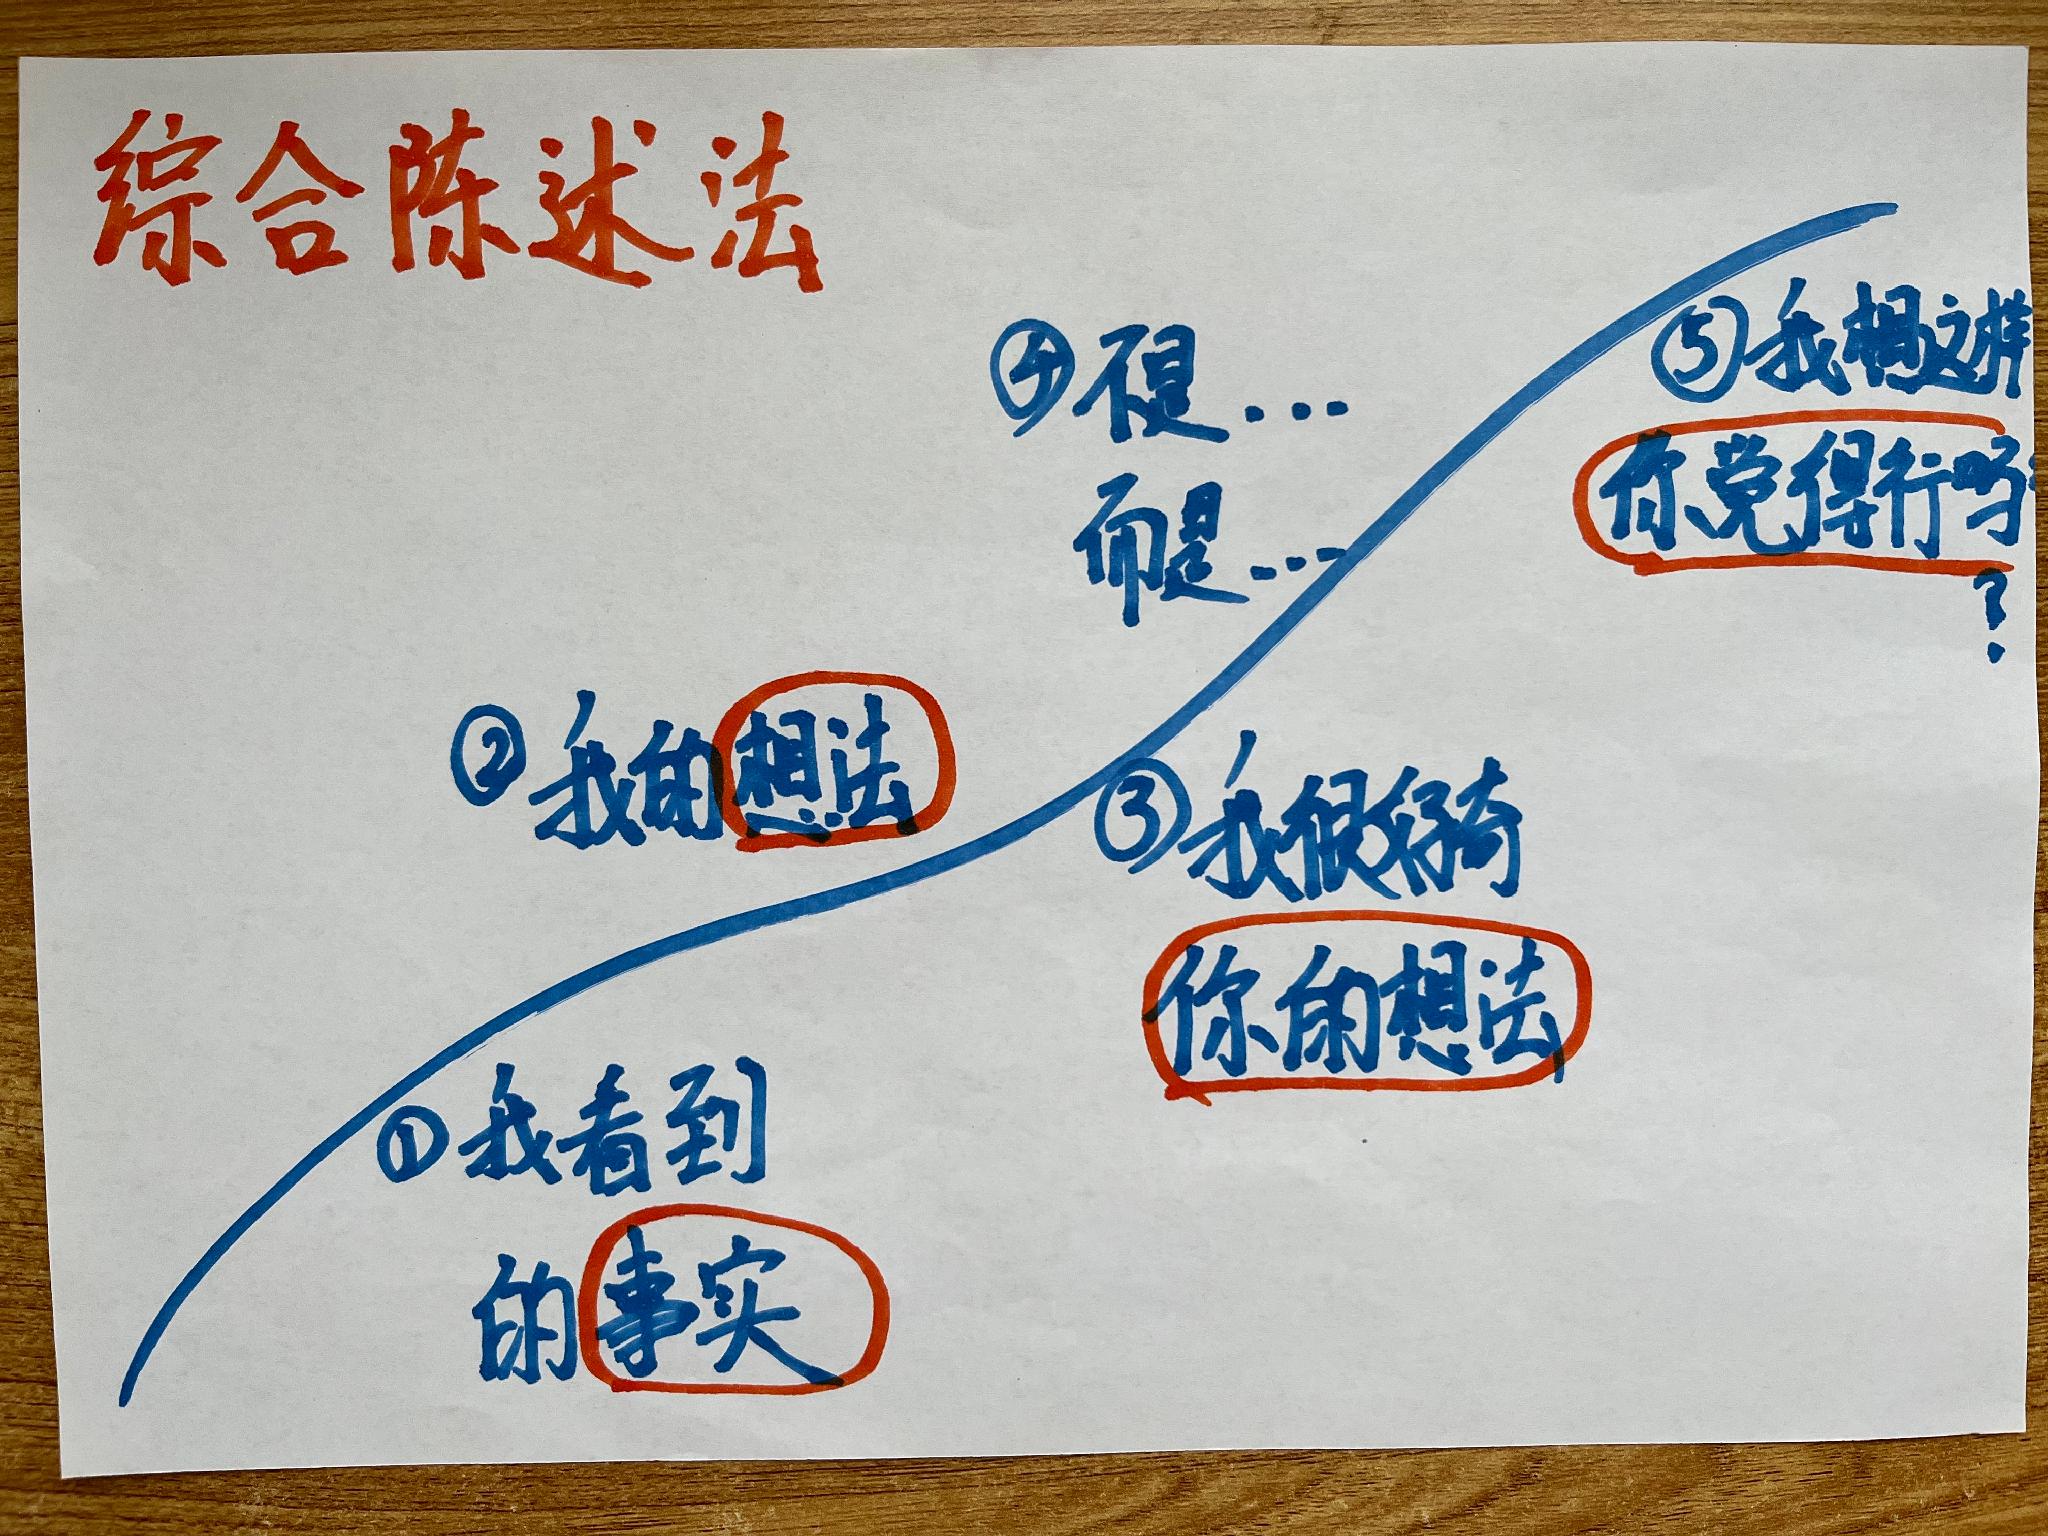 综合陈述法
①我看到
的事实
②我的想法
③我很好奇
你的想法
④不是...
而是...
⑤我想这样
你觉得行吗
?